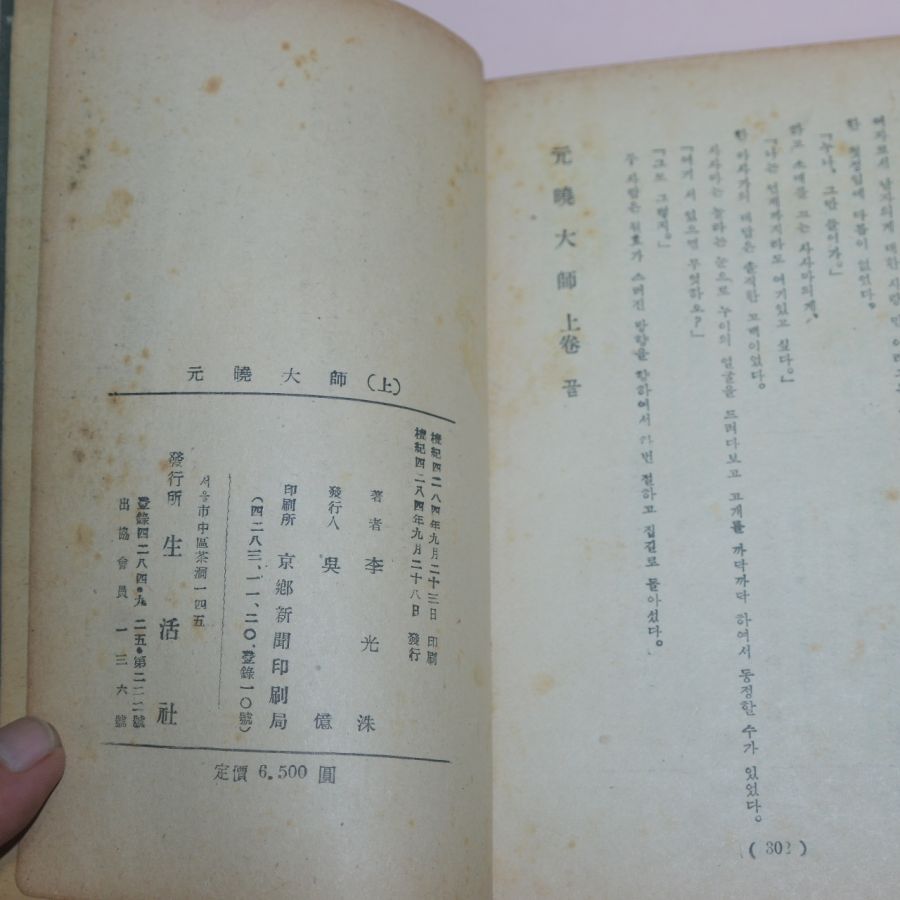 여자로서 남자의게 대한 사랑
한 첫정임에 다름이 없었다。
「누나, 그만 들어가。」
하고 소매를 끄는 사사마의게,
「나는 언제까지라도 여기있고 싶다。」
한 아사가의 대답은 솔직한 고백이었다。
사사마는 놀라는 눈으로 누이의 얼굴을 드려다보고 고개를 까닥까닥 하여서 동정할 수가 있었다。
「여기 서 있으면 무엇하오?」
「그도 그렇지。」
두 사람은 원효가 스러진 방향을 향하여서 한번 절하고 집길로 돌아섰다。
元曉大師 上卷 꿈
( 302 )
元曉大師(上)
檀紀四二八四年九月二十三日 印刷
檀紀四二八四年九月二十八日 發行
著者 李光洙
發行人 吳億
印刷所 京鄕新聞印刷局
(四二八三、一一、二〇、登錄一〇號)
서울市中區茶洞一四五
發行所 生活社
登錄四二八四•九 二五•第二二二號
出協會員 一三六號
定價 6.500 圓